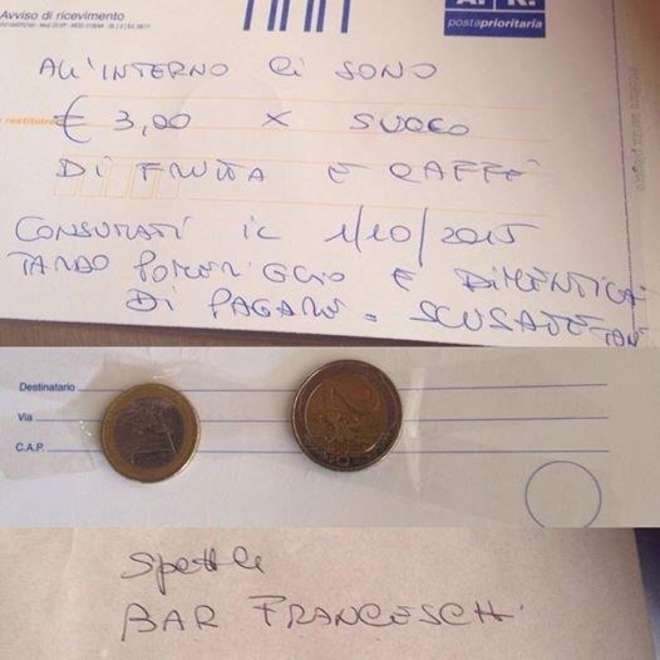 Avviso di ricevimento
A. R.
postaprioritaria
ALL'INTERNO CI SONO
restituire
€ 3,00 X SUCCO
DI FRUTTA E CAFFÈ
CONSUMATI IL 1/10/2015
TARDO POMERIGGIO E DIMENTICA
DI PAGARE. SCUSATE
Destinatario
Via
C.A.P.
Spett.le
BAR FRANCESCHI